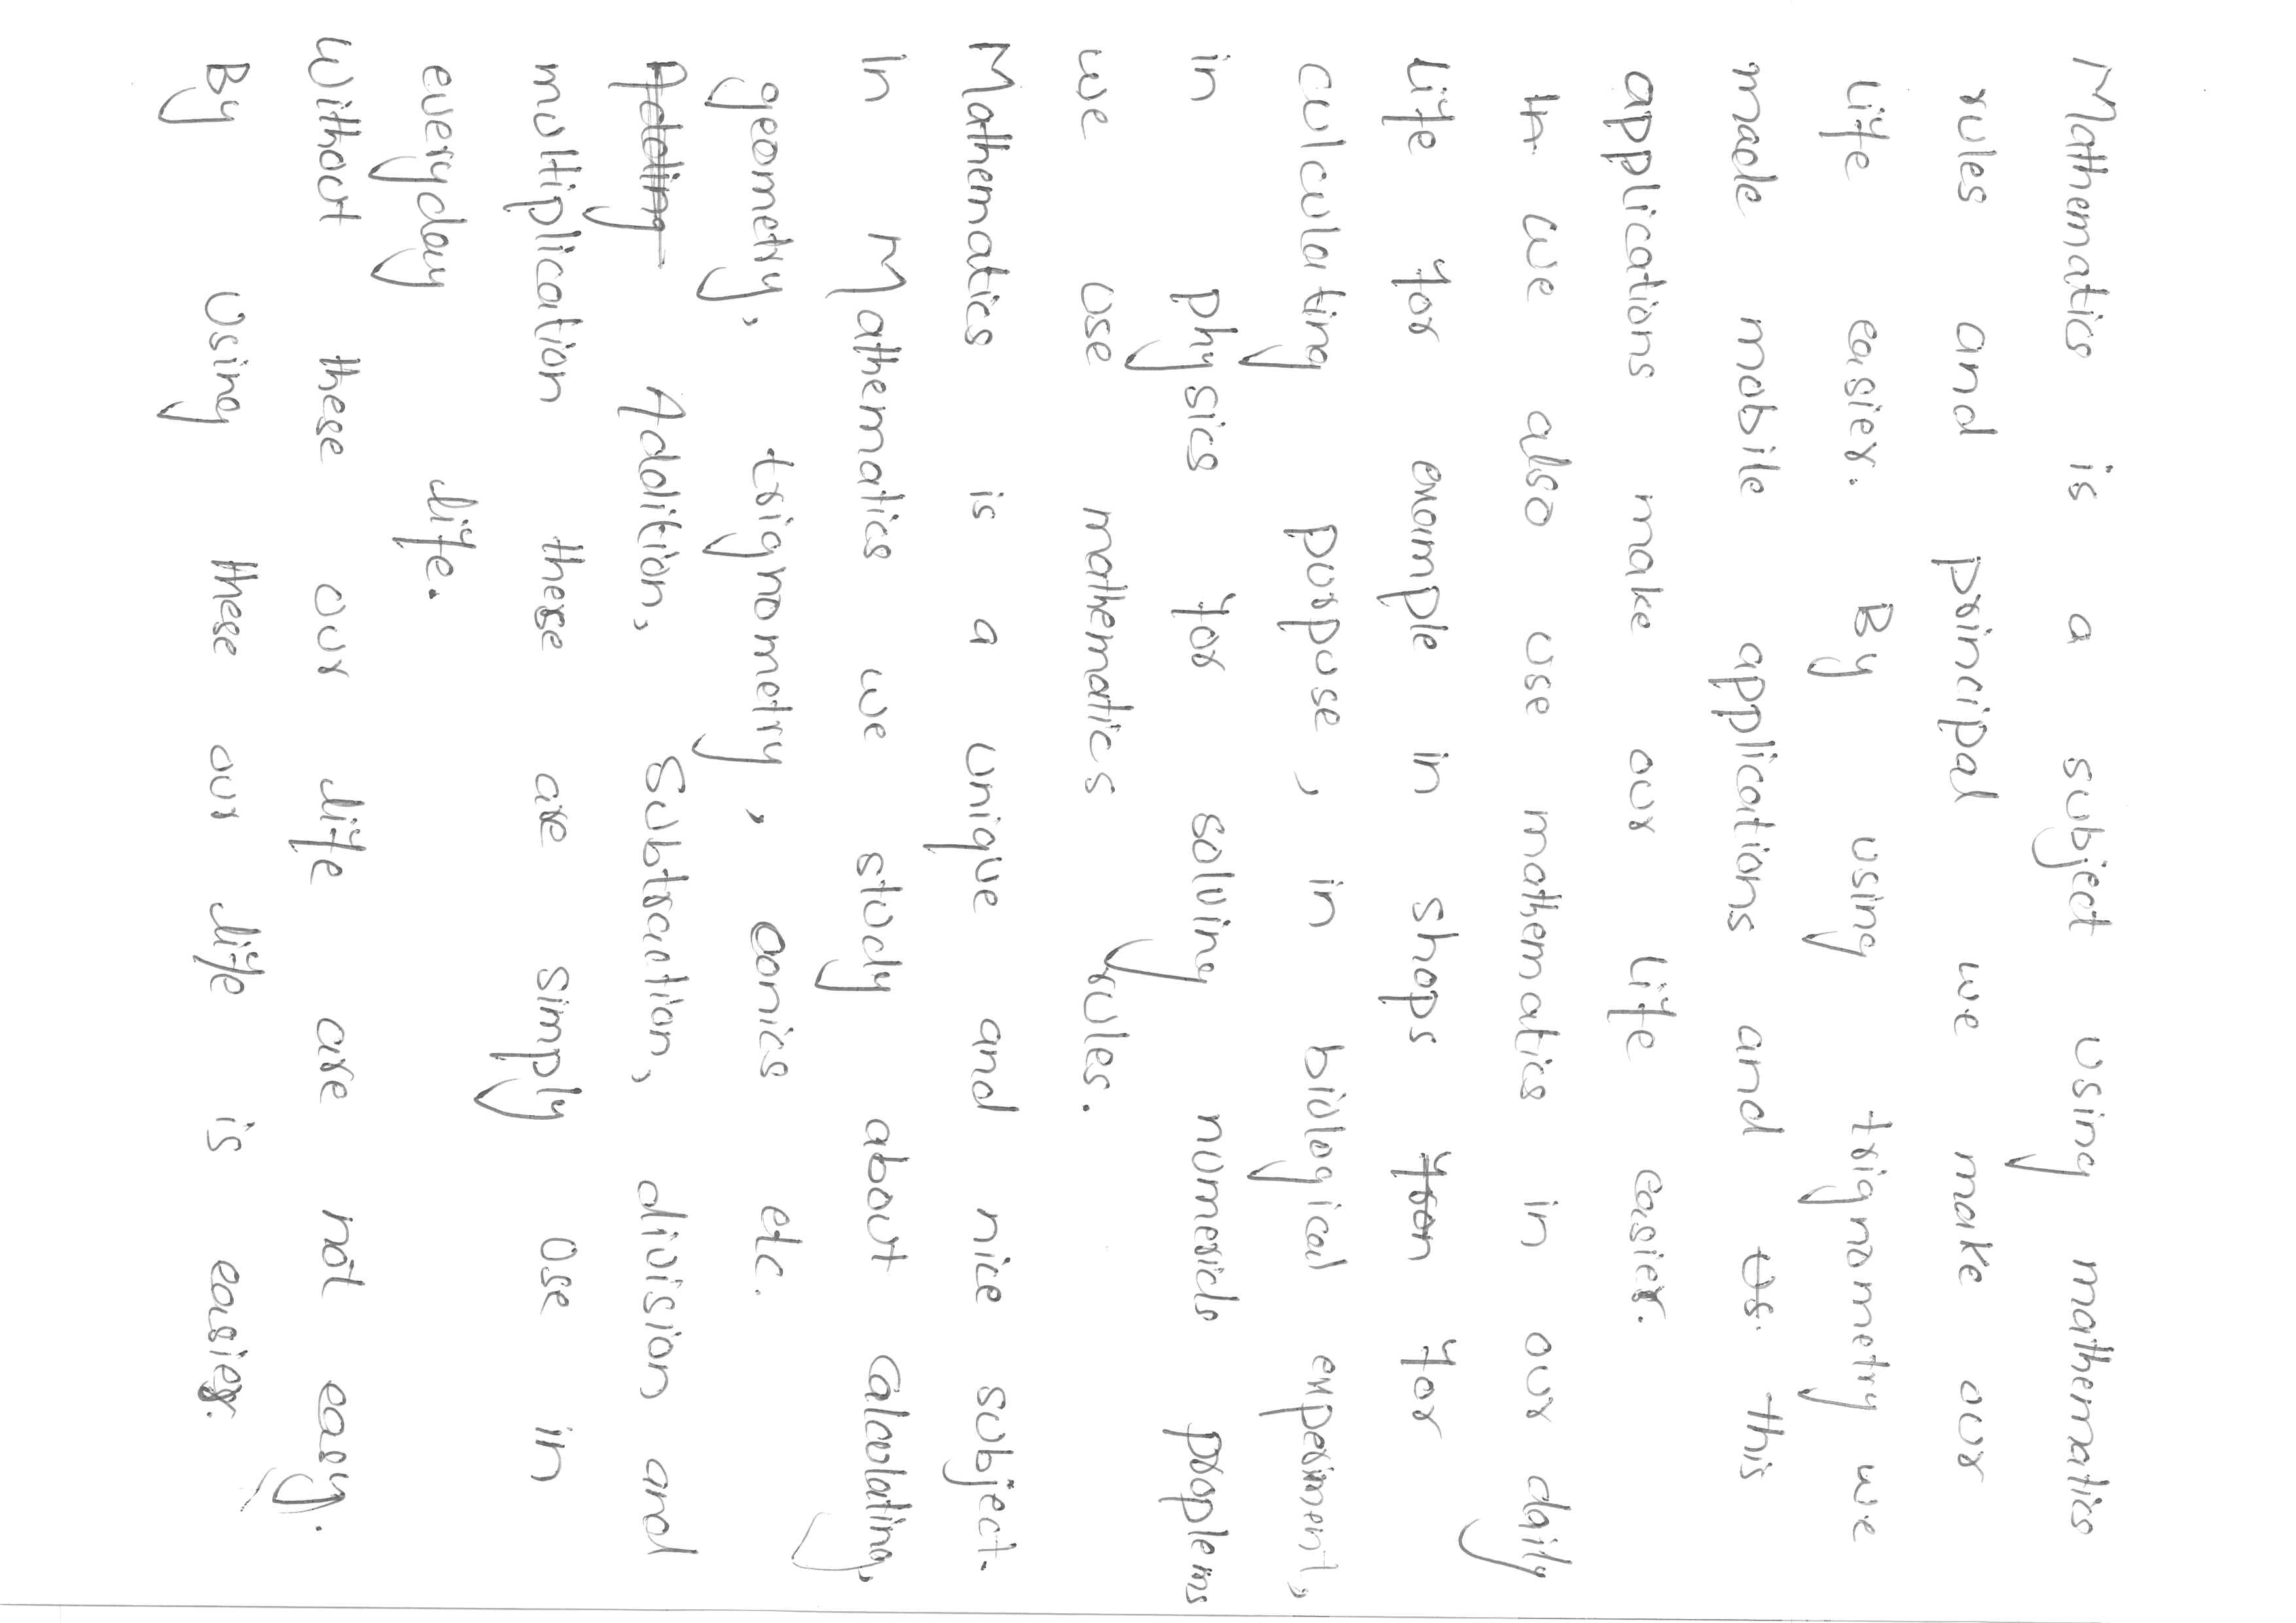 Mathematics is a subject using mathematics
rules and principal we make our
life easier. By using trignometry we
made mobile applications and Us. this
applications make our life easier.
In We also use mathematics in our daily
life for example in shops fron for
culculating purpuse, in biological experiment,
in physics for solving numericls proplems
we use mathematics rules.
Mathematics is a unique and nice subject.
In Mathematics we study about Calculating,
geometry, trignometry, conics etc.
Adding Addition, Subtraction, division and
multiplication these are simply Use in
everyday life.
Without these our life are not easy.
By Using these our life is easier.